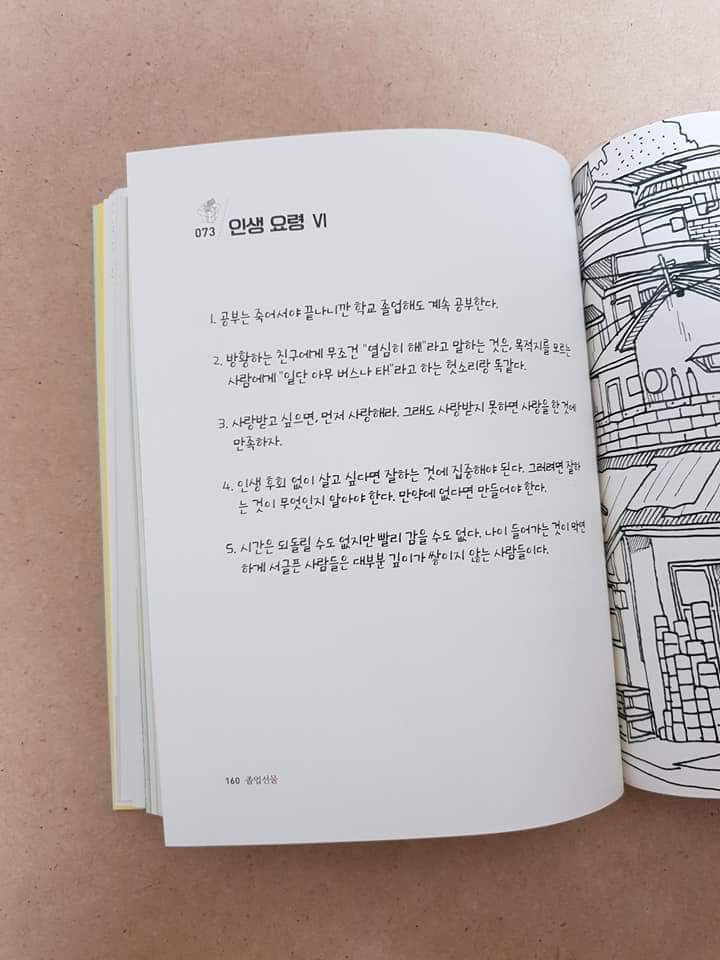 073 인생 요령 Ⅵ
1. 공부는 죽어서야 끝나니깐 학교 졸업해도 계속 공부한다.
2. 방황하는 친구에게 무조건 "열심히 해!"라고 말하는 것은, 목적지를 모르는
사람에게 "일단 아무 버스나 타!"라고 하는 헛소리랑 똑같다.
3. 사랑받고 싶으면, 먼저 사랑해라. 그래도 사랑받지 못하면 사랑을 한 것에
만족하자.
4. 인생 후회 없이 살고 싶다면 잘하는 것에 집중해야 된다. 그러려면 잘하
는 것이 무엇인지 알아야 한다. 만약에 없다면 만들어야 한다.
5. 시간은 되돌릴 수도 없지만 빨리 감을 수도 없다. 나이 들어가는 것이 막연
하게 서글픈 사람들은 대부분 깊이가 쌓이지 않는 사람들이다.
160 졸업선물